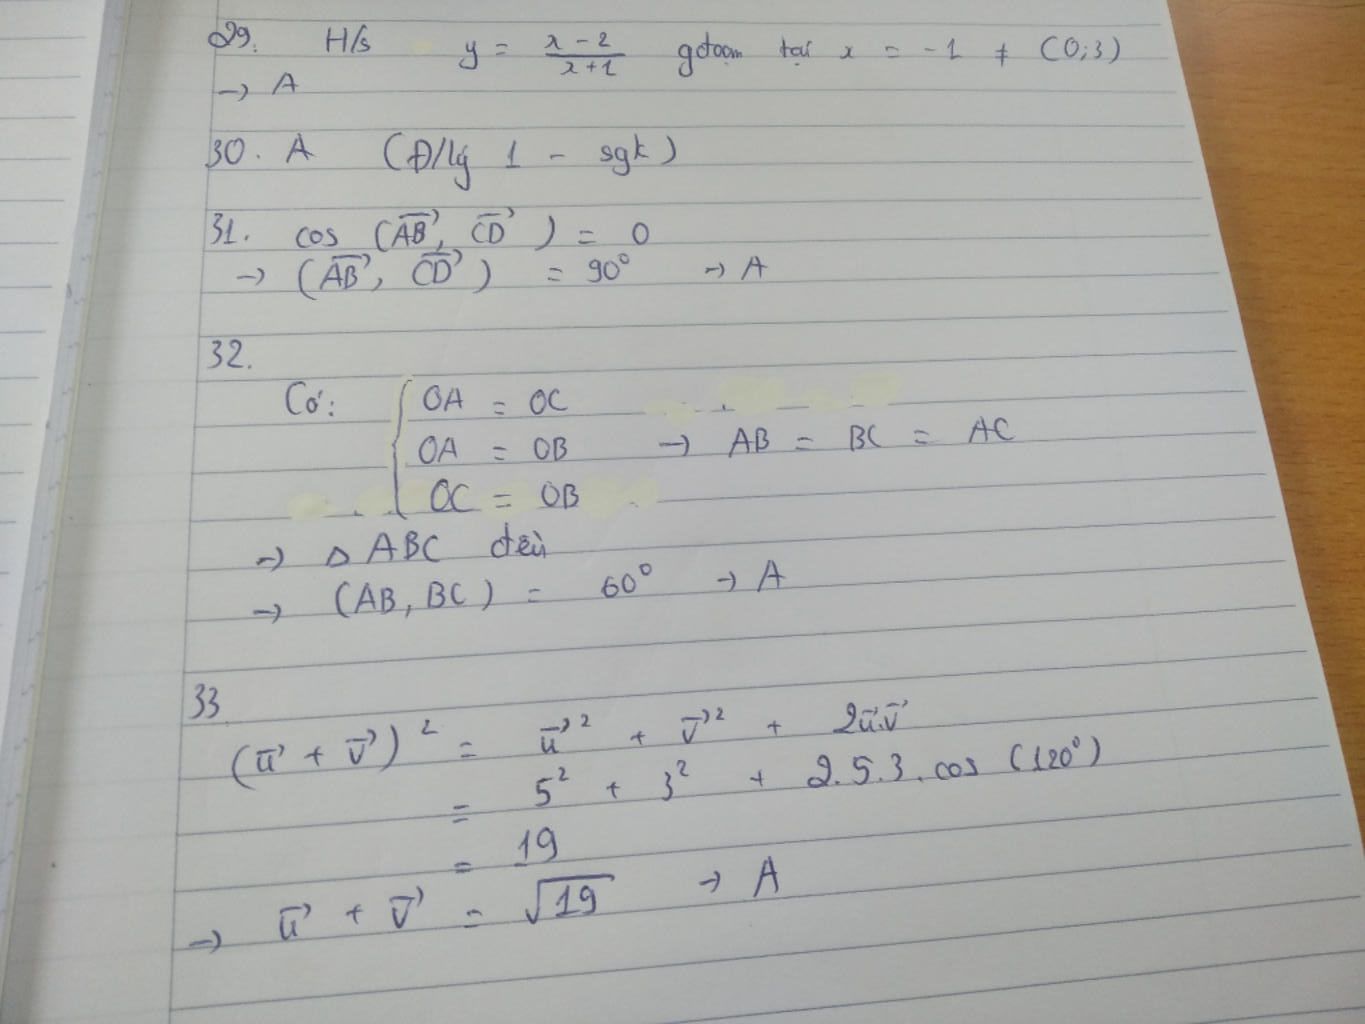 29. H/s y = x - 2 / x + 1 gđoạn tại x = -1 ≠ (0;3)
→ A
30. A (Đ/lý 1 - sgk)
31. cos (AB→, CD→) = 0
→ (AB→, CD→) = 90° → A
32.
Có: { OA = OC
OA = OB → AB = BC = AC
OC = OB
→ △ ABC đều
→ (AB, BC) = 60° → A
33
(u→ + v→)² = u→² + v→² + 2u→.v→
= 5² + 3² + 2.5.3.cos (120°)
= 19
→ u→ + v→ = √19 → A